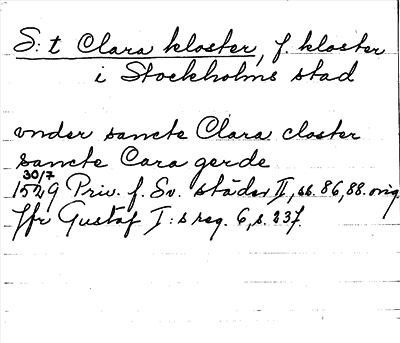 S:t Clara kloster, f. kloster
i Stockholms stad
vnder sancte Clara closter
sancte Cara gerde
30/7
1529 Priv. f. Sv. städer II, ss. 86, 88. orig.
Jfr Gustaf I:s reg. 6, s. 237.